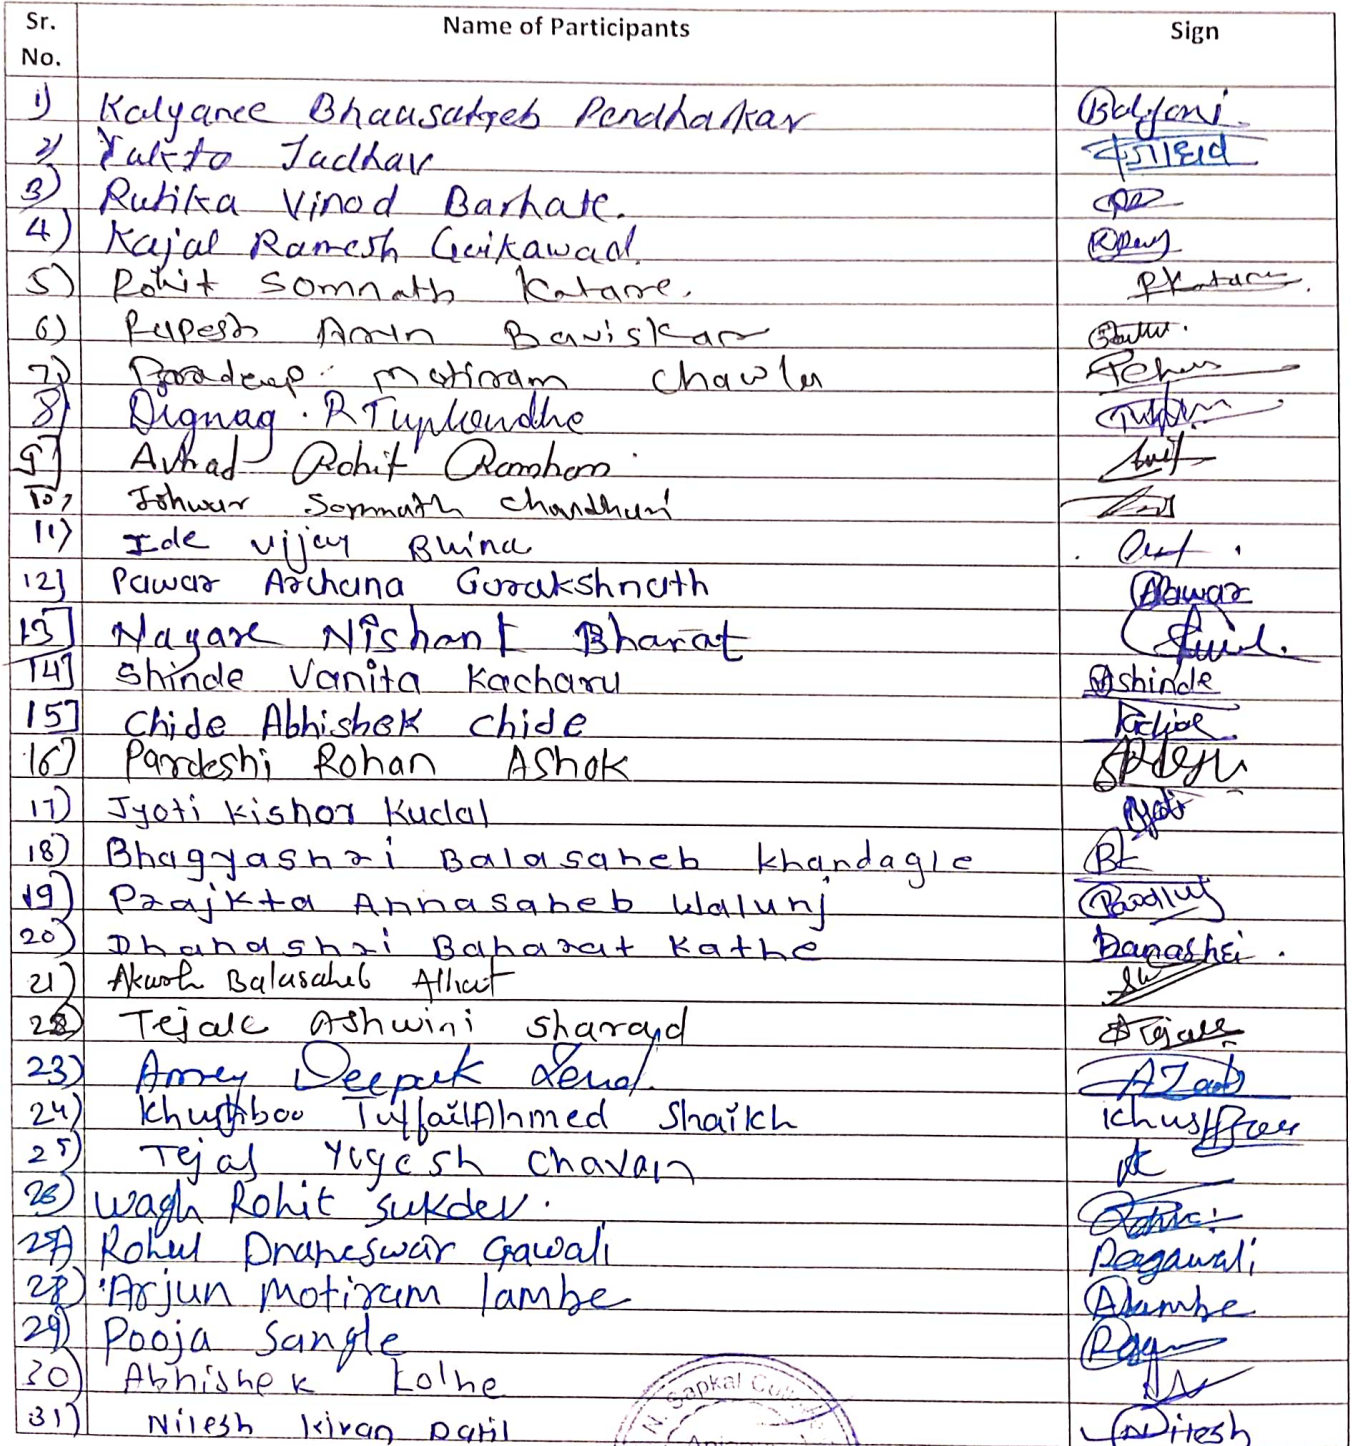 Sr. No. Name of Participants Sign
1) Kalyanee Bhausaheb Pendharkar
2) Yukta Jadhav
3) Rutika Vinod Barhate.
4) Kajal Ramesh Gaikawad.
5) Rohit Somnath Katare. RKatare
6) Rupesh Arun Baviskar
7) Pradeep Motiram Chawla
8) Dignag . R Tuplondhe
9] Avhad Rohit Rambham
10) Ishwar Somnath Chaudhari
11) Ide Vijay
12] Pawar Archana Gorakshnath APawar
13] Nagare Nishant Bharat
14] Shinde Vanita Kacharu Shinde
15] Chide Abhishek Chide
16) Pardeshi Rohan Ashok
17) Jyoti Kishor Kudal Jyoti
18) Bhagyashri Balasaheb Khandagle BK
19) Prajkta Annasaheb Walunj
20) Dhanashri Baharat Kathe Danashri.
21) Akash Balasaheb Alhat
22) Tejale Ashwini Sharad Tejale
23) Amey Deepak
24) Khushboo TuffailAhmed Shaikh Khushboo
25) Tejas Yogesh Chavan
26) Wagh Rohit Sukdev.
27) Rohul Dnaneswar Gawali Rgawali
28) Arjun Motiram lambe Alambe
29) Pooja Sangle
30) Abhishek Kolhe
31) Nilesh Kiran Patil Nitesh
N. Sapkal